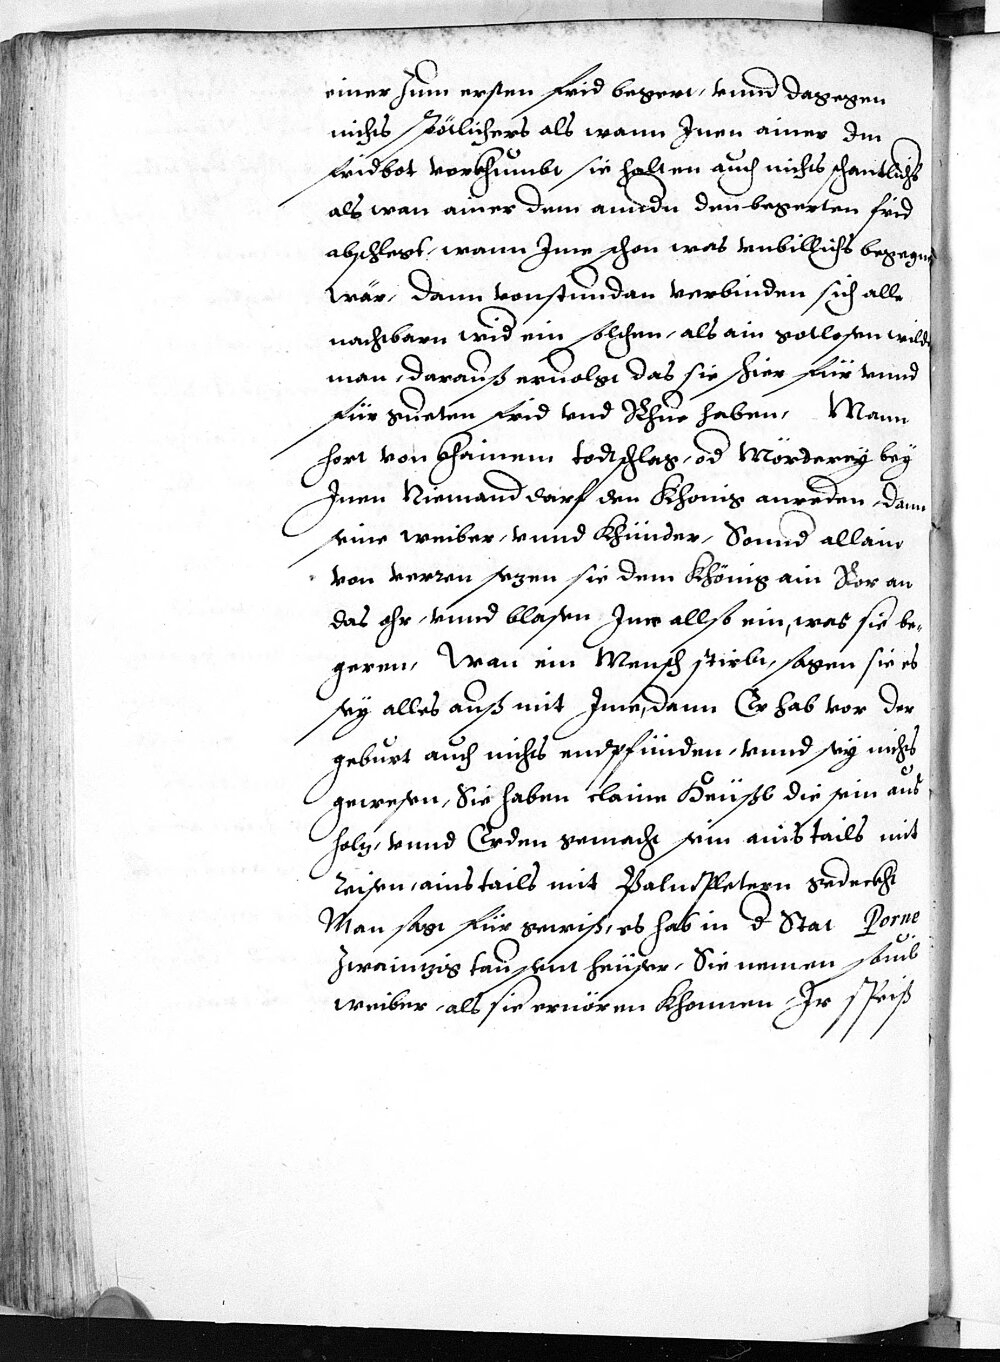 einer zum ersten frid begert, vnnd dagegen
nichts spötlichers als wann Inen ainer den
fridbot vorkhumbt sie halten auch nichts schantlichs
als wan ainer dem anndn den begerten frid
abschlegt, wann Ime schon was vnbillichs begegn
wär, dann vonstundan verbinden sich alle
nachbarn wid ein solchen, als ain gotlosen wild
man, darauß eruolgt das sie hier für vnnd
für gueten frid vnd Rhue haben, Mann
hort von khainem todtschlag, od Mörderey bey
Inen Niemand darf den Khonig anreden, dann
seine weiber, vnnd Khinder, Sonnd allain
von verren setzen sie dem Khönig ain Ror an
das ohr, vnnd blasen Ime allso ein, was sie be-
geren, Wan ein Mensch stirbt, sagen sie es
sey alles auß mit Ime, dann Er hab vor der
geburt auch nichts endpfunden, vnnd sey nichts
gewesen, Sie haben claine Heüsl die sein aus
holz, vnnd Erden gemacht sein ainstails mit
Reisen, ainstails mit Palmpletern gedeckht
Man sagt für gewiß, es hab in d Stat Porne
zwaintzig tausent heüser, Sie nemen souil
weiber, als sie ernören khonnen Ir speiß